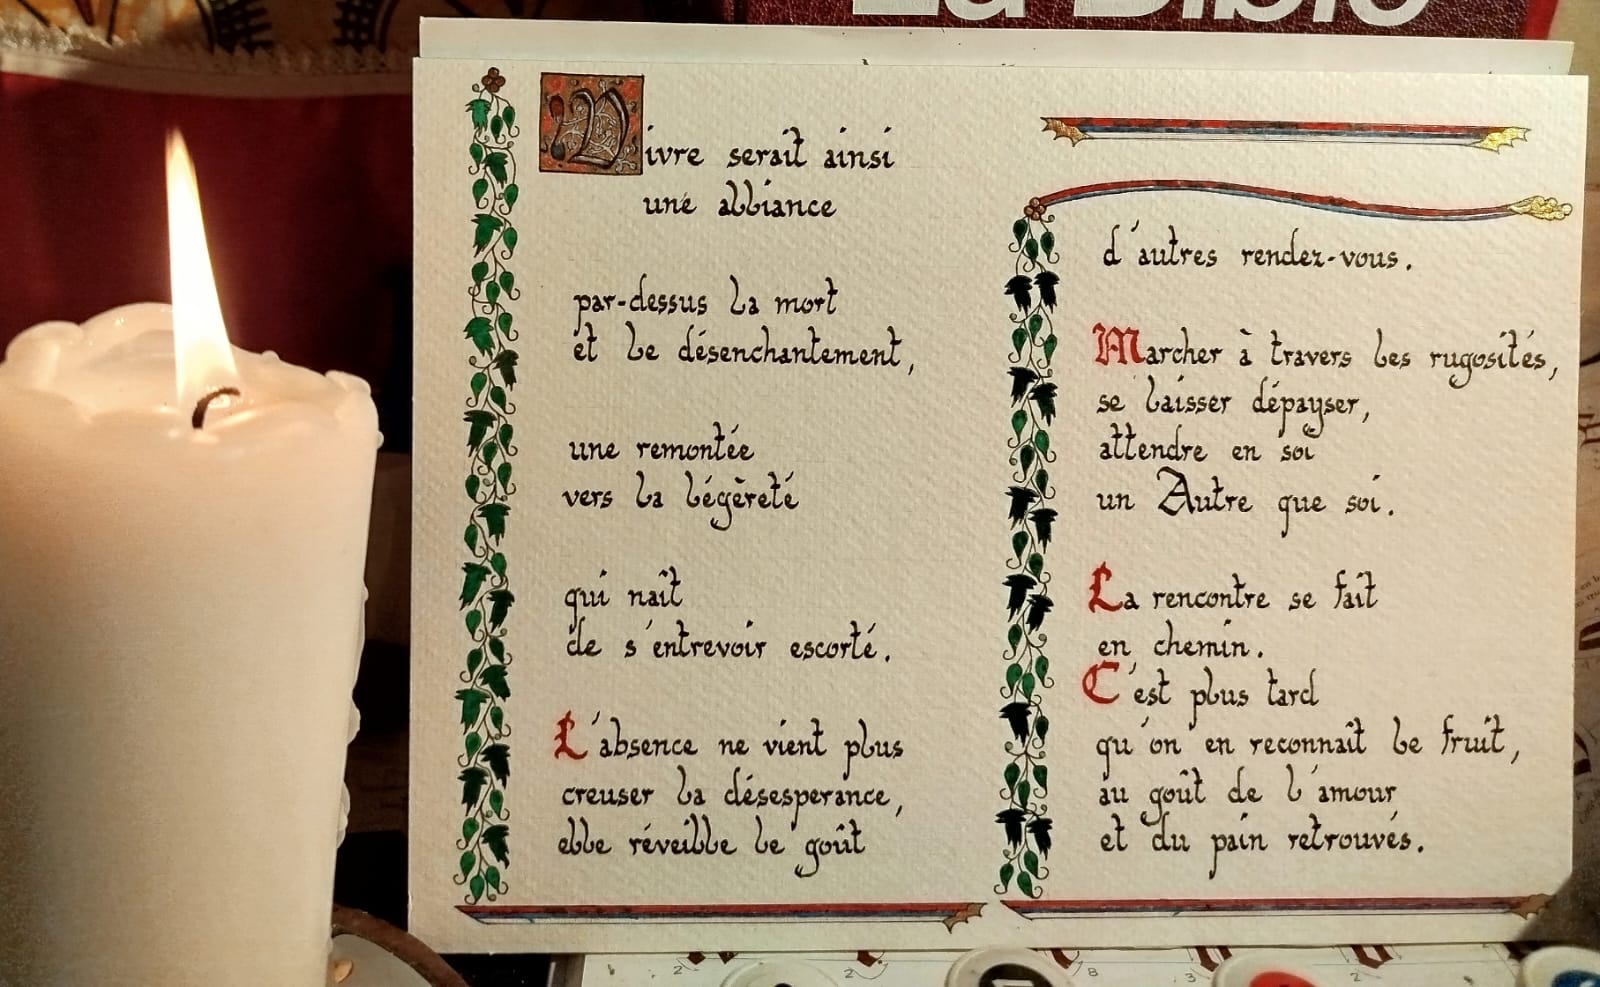 La Bible
Vivre serait ainsi
une alliance
par-dessus la mort
et le désenchantement,
une remontée
vers la légèreté
qui naît
de s'entrevoir escorté.
L'absence ne vient plus
creuser la désesperance,
elle réveille le goût
d'autres rendez-vous.
Marcher à travers les rugosités,
se laisser dépayser,
attendre en soi
un Autre que soi.
La rencontre se fait
en chemin.
C'est plus tard
qu'on en reconnaît le fruit,
au goût de l'amour
et du pain retrouvés.
2 2 8 3 2